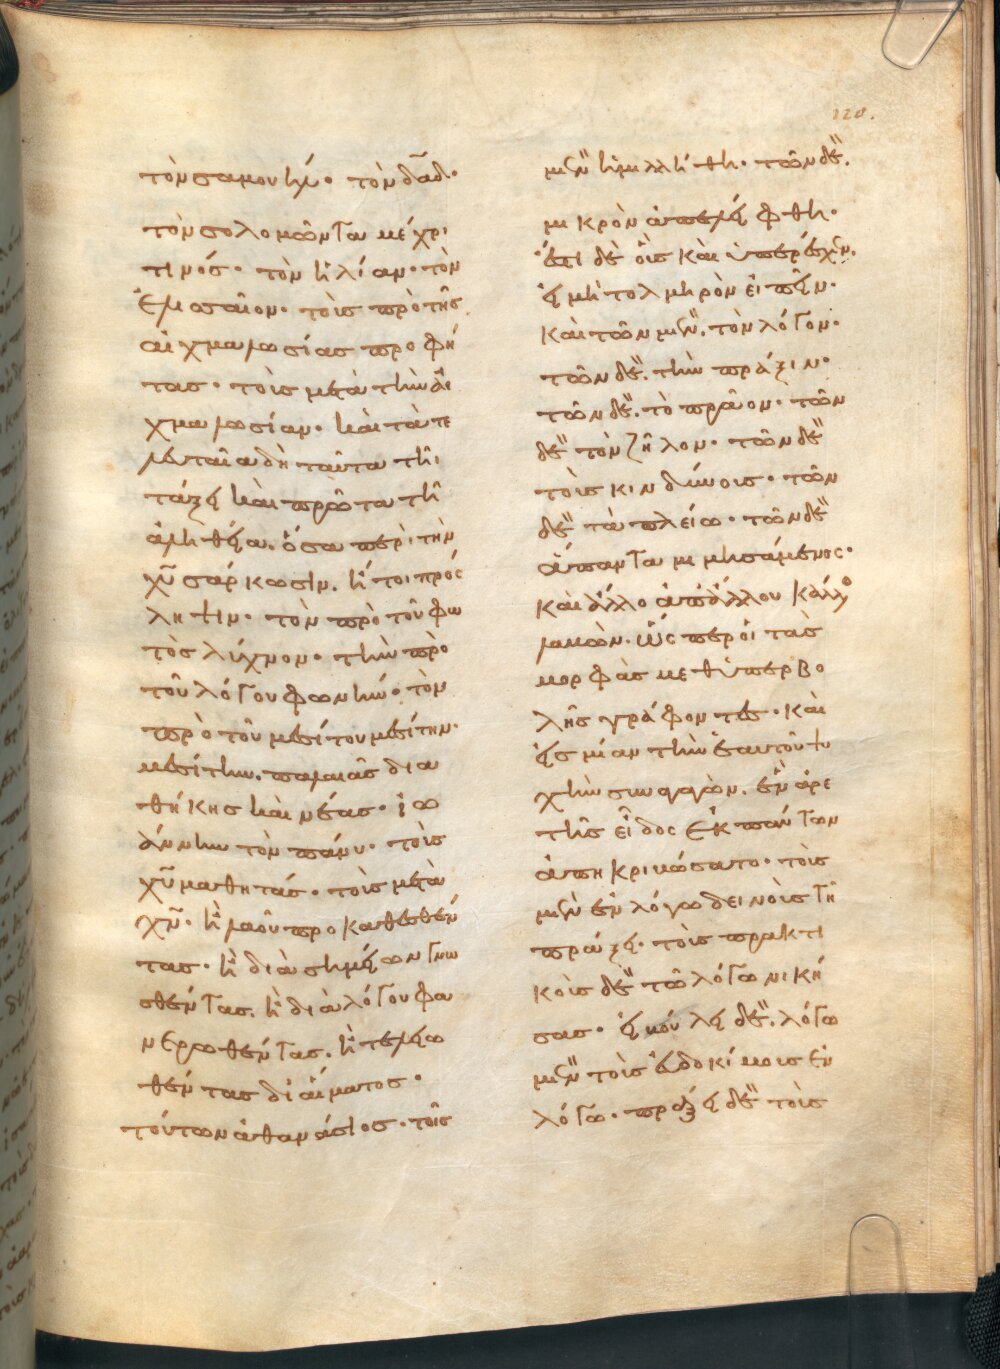 120.
τὸν σαμουὴλ· τὸν δᾱδ·
τὸν σολομῶντα μέχρι
τινός· τὸν ἠλίαν· τὸν
ἐλισσαῖον· τοὺς πρὸ τῆς
αἰχμαλωσίας προφή
τας· τοὺς μετὰ τὴν αἰ
χμαλωσίαν· καὶ τὰ τε
λευταῖα δὴ ταῦτα τῆι
τάξει καὶ πρῶτα τῆ
ἀληθεία. ὅσα περὶ τὴν
χῡ σάρκωσιν. ἤτοι πρόσ
ληψιν· τὸν πρὸ τοῦ φω
τὸς λύχνον· τὴν πρὸ
τοῦ λόγου φωνήν· τὸν
πρὸ τοῦ μεσίτου μεσίτην·
μεσίτην. παλαιᾶς δια
θήκης καὶ νέας· ἰω
άννην τὸν πάνυ· τοὺς
χῡ μαθητάς· τοὺς μετὰ
χν̄· ἢ λαοῦ προκαθεσθέν
τας· ἢ διὰ σημείων γνω
σθέντας. ἢ διὰ λόγου φα
νερωθέντας. ἢ τελειω
θέντας δι αἵματος·
τούτων ἀθανάσιος· τοῖς
μὲν ἡμιλλήθη· τῶν δὲ.
μικρὸν ἀπελείφθη·
ἔστι δὲ οὓς καὶ ὑπερέσχεν.
εἰ μὴ τολμηρὸν εἰπεῖν·
καὶ τῶν μὲν. τὸν λόγον·
τῶν δὲ. τὴν πρᾶξιν·
τῶν δὲ. τὸ πρᾶον· τῶν
δὲ τὸν ζῆλον· τῶν δὲ
τοὺς κινδύνους· τῶν
δὲ τὰ πλείω· τῶν δὲ
ἅπαντα μιμησάμενος·
καὶ ἄλλο ἀπ ἄλλου κάλλος
λαβὼν· ὥσπερ οἱ τὰς
μορφὰς μεθ ὑπερβο
λῆς γράφοντες· καὶ
εἰς μίαν τὴν ἑαυτοῦ ψυ
χὴν συναγαγὼν. ἓν ἀρε
τῆς εἶδος ἐκ πάντων
ἀπηκριβώσατο· τοὺς
μὲν ἐν λόγω δεινοὺς τῆ
πράξει· τοὺς πρακτι
κοὺς δὲ τῶ λόγω νική
σας· εἰ βούλει δὲ. λόγω
μὲν τοὺς εὐδοκίμους ἐν
λόγω· πράξει δὲ τοὺς